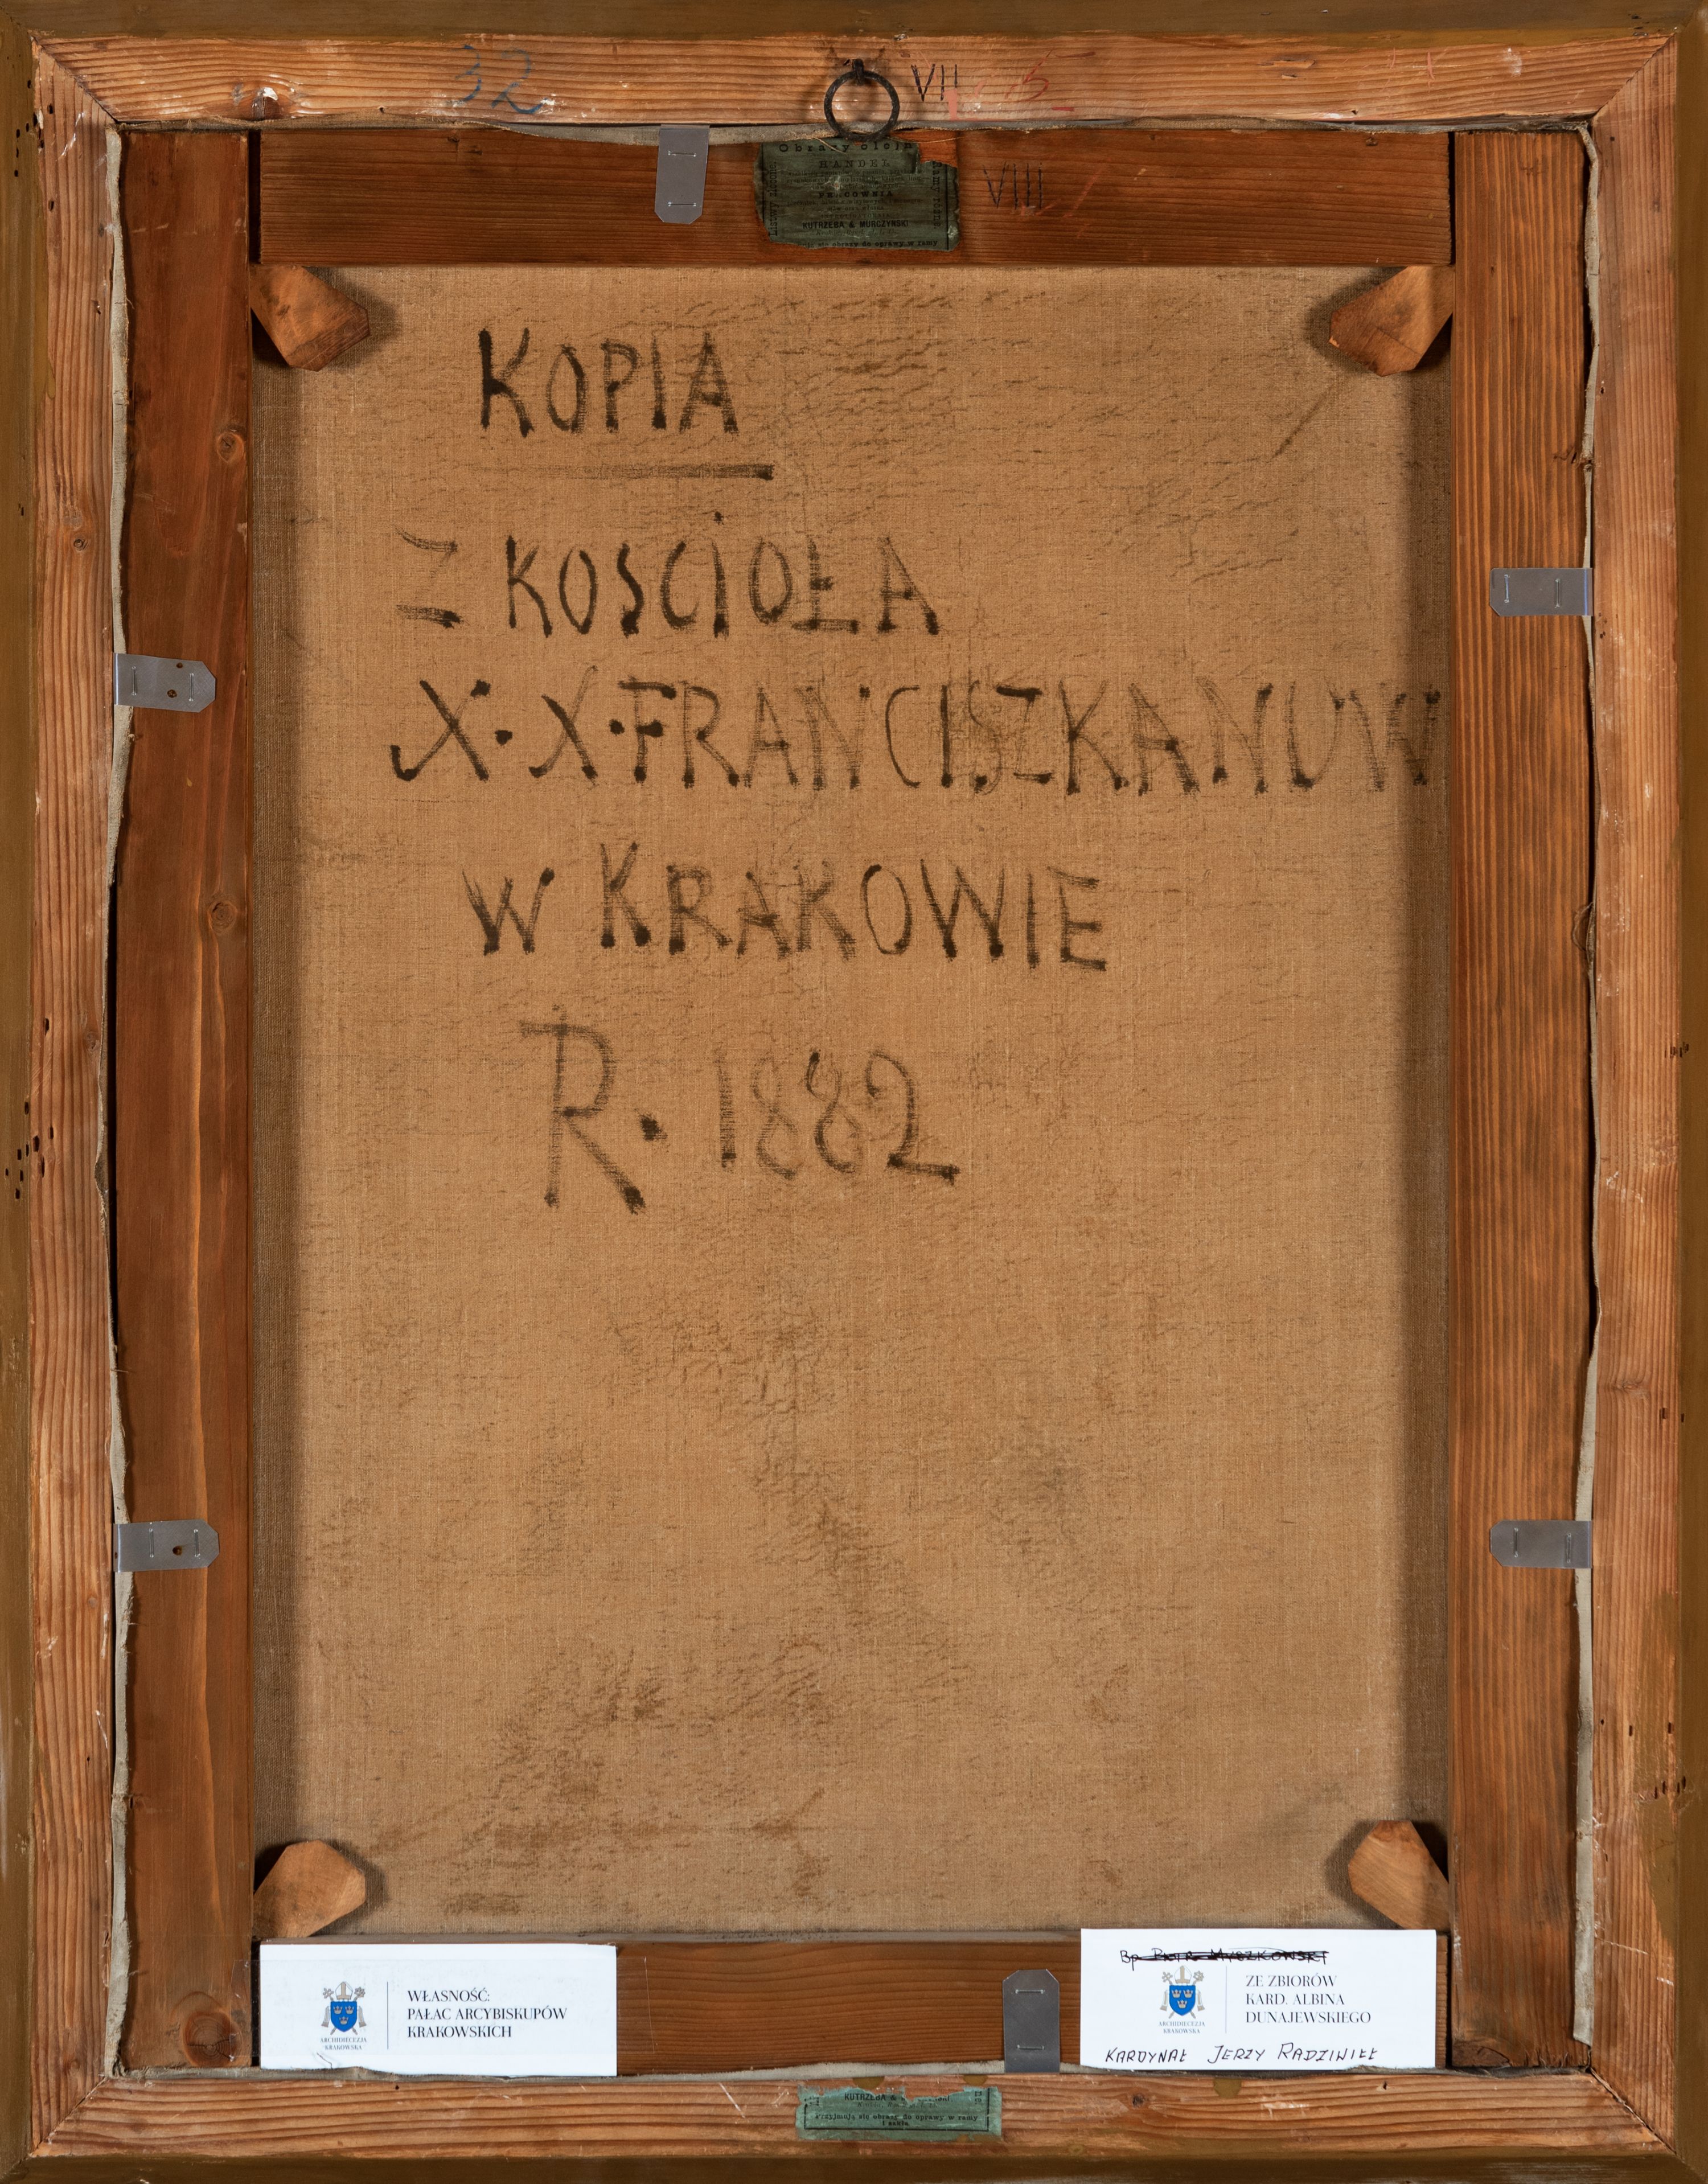 32
VII
VIII
Obrazy olejn
HANDEL
PRACOWNIA
KUTRZEBA & MURCZYŃSKI
się obrazy do oprawy w ramy
KOPIA
Z KOSCIOŁA
X·X·FRANCISZKANUW
W KRAKOWIE
R·1882
WŁASNOŚĆ:
PAŁAC ARCYBISKUPÓW
KRAKOWSKICH
ARCHIDIECEZJA
KRAKOWSKA
Bp PIOTR MYSZKOWSKI
ZE ZBIORÓW
KARD. ALBINA
DUNAJEWSKIEGO
ARCHIDIECEZJA
KRAKOWSKA
KARDYNAŁ JERZY RADZIWIŁŁ
KUTRZEBA &
Przyjmują się obrazy do oprawy w ramy